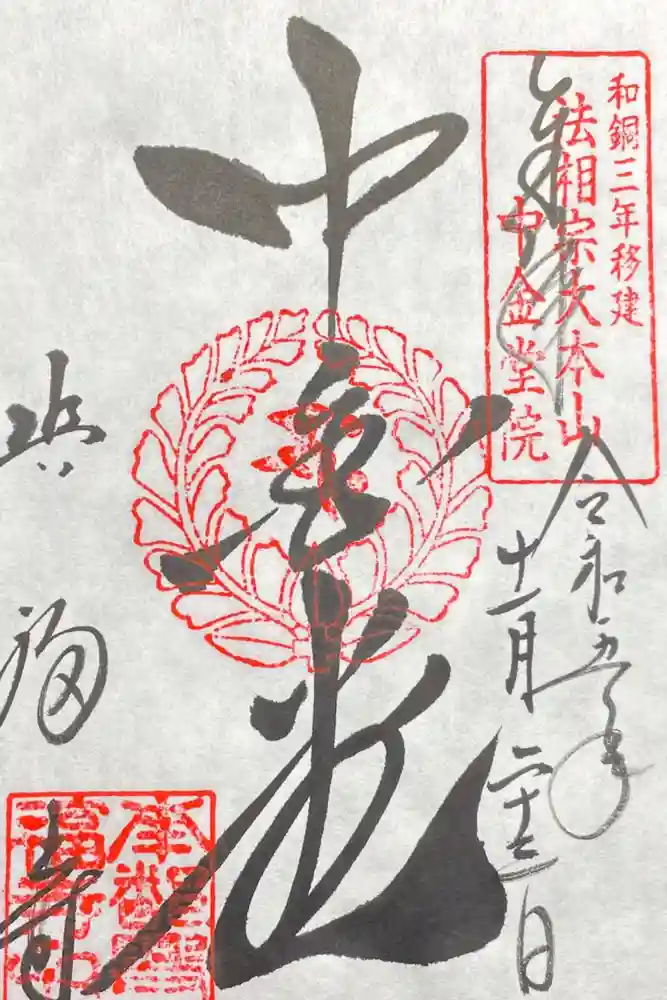 奉拝
和銅三年移建
法相宗大本山
中金堂院
令和五年
十一月二十三日
中金堂
興福寺